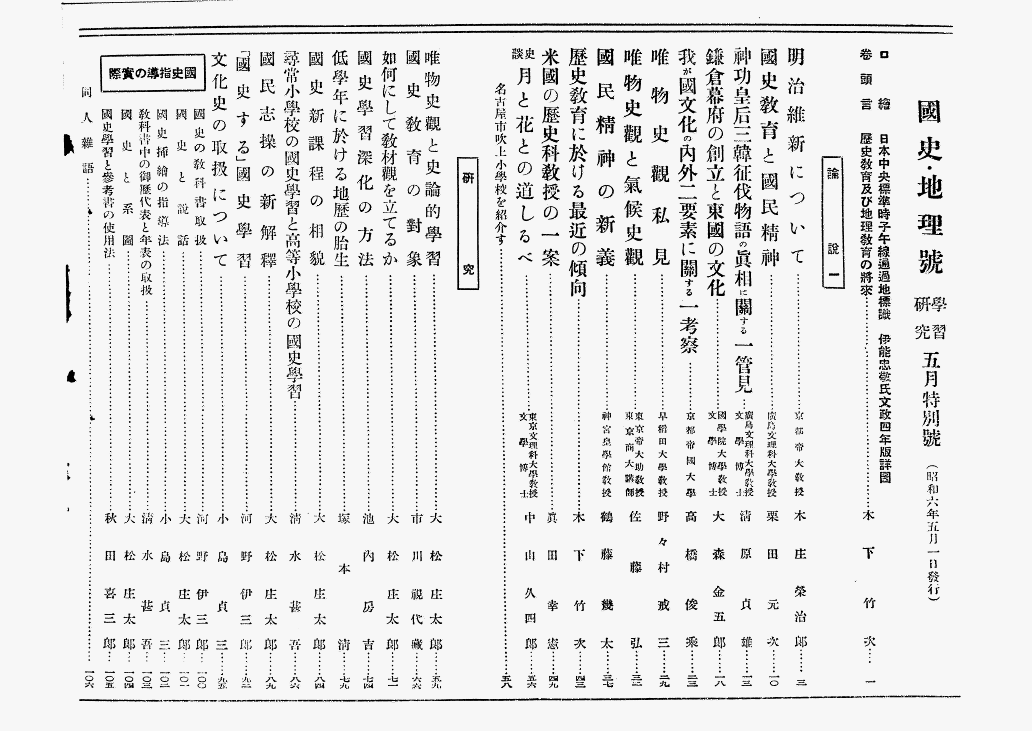 國史・地理號 學習研究 五月特別號 (昭和六年五月一日發行)
口繪 日本中央標準時子午線通過地標識 伊能忠敬氏文政四年版詳図
卷頭言 歷史敎育及び地理敎育の將來……木下竹次……一
論說一
明治維新について……京都帝大敎授 木庄榮治郎……三
國史敎育と國民精神……廣島文理科大學敎授 栗田元次……一〇
神功皇后三韓征伐物語の眞相に關する一管見……廣島文理科大學敎授 文學博士 清原貞雄……一三
鎌倉幕府の創立と東國の文化……國學院大學敎授 文學博士 大森金五郎……一八
我が國文化の內外二要素に關する一考察……京都帝國大學 高橋俊乘……二三
唯物史觀私見……早稻田大學敎授 野々村戒三……二九
唯物史觀と氣候史觀……東京帝大助敎授 東京商大講師 佐藤弘……三二
國民精神の新義……神宮皇學館敎授 鶴藤幾太……三七
歷史敎育に於ける最近の傾向……木下竹次……四三
米國の歷史科敎授の一案……眞田幸憲……四九
史談 月と花との道しるべ……東京文理科大學敎授 文學博士 中山久四郎……五六
名古屋市吹上小學校を紹介す……五八
硏究
唯物史觀と史論的學習……大松庄太郎……五九
國史敎育の對象……市川視代藏……六六
如何にして敎材觀を立てるか……大松庄太郎……七一
國史學習深化の方法……池內房吉……七四
低學年に於ける地歷の胎生……塚本清……七九
國史新課程の相貌……大松庄太郎……八四
尋常小學校の國史學習と高等小學校の國史學習……淸水甚吾……八六
國民志操の新解釋……大松庄太郎
「國史する」國史學習……河野伊三郎
文化史の取扱について……小島貞三……九五
國史指導の實際
國史の敎科書取扱……河野伊三郎……一〇〇
國史と說話……大松庄太郎……一〇一
國史挿繪の指導法……小島貞三……一〇二
敎科書中の御歷代表と年表の取扱……淸水甚吾……一〇三
國史と系圖……大松庄太郎……一〇四
國史學習と參考書の使用法……秋田喜三郎……一〇五
同人雜語……一〇六